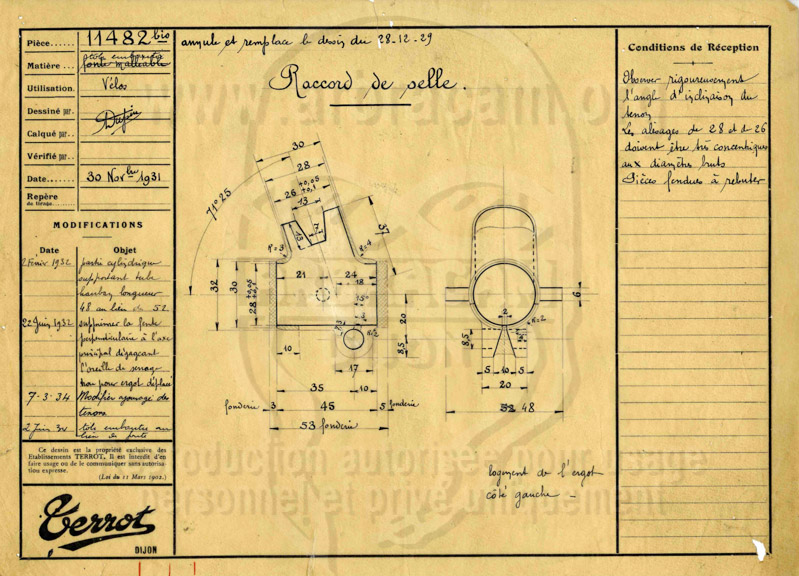 Pièce...... 11482 bis
annule et remplace le dessin du 28-12-29
Matière... tôle emboutie
fonte malléable
Utilisation. Vélos
Dessiné par.
Calqué par..
Vérifié par..
Date....... 30 Novbre 1931
Repère
du tirage.
MODIFICATIONS
Date Objet
2 Février 1932 partie cylindrique
supportant tube
hauban longueur
48 au lieu de 52
22 Juin 1932 supprimer la fente
perpendiculaire à l'axe
principal dégageant
l'oreille de serrage
trou pour ergot déplacé
7-3-34 Modifier ajourage des
tenons
2 Juin 34 tôle emboutie au
lieu de fonte
Ce dessin est la propriété exclusive des
Etablissements TERROT. Il est interdit d'en
faire usage ou de le communiquer sans autorisa-
tion expresse.
(Loi du 11 Mars 1902.)
Terrot
DIJON
Raccord de selle.
30
28
26 +0,05 +0,1
13
71°25
37
13
R=3
R=4
21 24
18
32
30
28
20
8,5
10
17
35 10
fonderie 3 45 5 fonderie
53 fonderie
6
2
R=2
8,5
5 10 5
20
52 48
logement de l'ergot
côté gauche -
Conditions de Réception
Observer rigoureusement
l'angle d'inclinaison du
tenon
Les alésages de 28 et de 26
doivent être très concentriques
aux diamètres bruts
Pièces fendues à rebuter
reproduction autorisée pour usage
personnel et privé uniquement